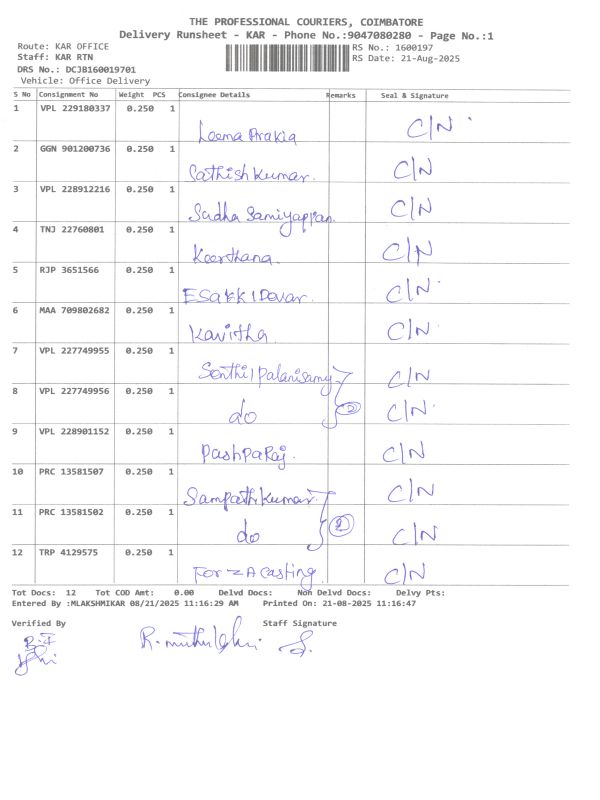 THE PROFESSIONAL COURIERS, COIMBATORE
Delivery Runsheet - KAR - Phone No.:9047080280 - Page No.:1
Route: KAR OFFICE RS No.: 1600197
Staff: KAR RTN RS Date: 21-Aug-2025
DRS No.: DCJB160019701
Vehicle: Office Delivery
S No Consignment No Weight PCS Consignee Details Remarks Seal & Signature
1 VPL 229180337 0.250 1 C/N
Leema Prakia
2 GGN 901200736 0.250 1 C/N
Sathish Kumar.
3 VPL 228912216 0.250 1 C/N
Sudha Samiyappan.
4 TNJ 22760801 0.250 1 C/N
Keerthana.
5 RJP 3651566 0.250 1 C/N
ESakki Devar.
6 MAA 709802682 0.250 1 C/N
Kavitha.
7 VPL 227749955 0.250 1 C/N
Senthil Palanisamy
8 VPL 227749956 0.250 1 C/N
do 2
9 VPL 228901152 0.250 1 C/N
PashpaRaj.
10 PRC 13581507 0.250 1 C/N
Sampath Kumar.
11 PRC 13581502 0.250 1 C/N
do 2
12 TRP 4129575 0.250 1 C/N
For Z A Casting.
Tot Docs: 12 Tot COD Amt: 0.00 Delvd Docs: Non Delvd Docs: Delvy Pts:
Entered By :MLAKSHMIKAR 08/21/2025 11:16:29 AM Printed On: 21-08-2025 11:16:47
Verified By Staff Signature